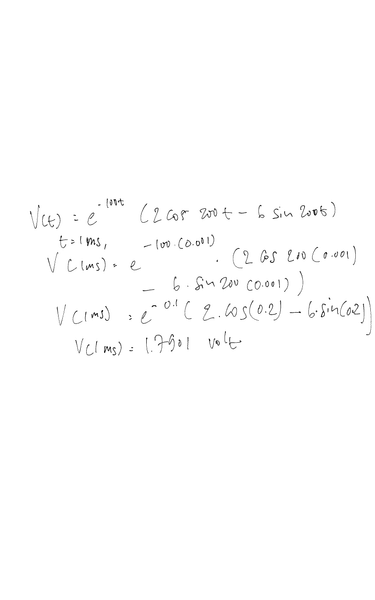 V(t) = e^-100t (2 cos 200t - 6 sin 200t)
t = 1 ms,
V(1ms) = e^-100.(0.001) . (2 cos 200 (0.001)
- 6. sin 200 (0.001))
V(1ms) = e^-0.1 (2. cos(0.2) - 6. sin(0.2))
V(1ms) = 1.7901 volt